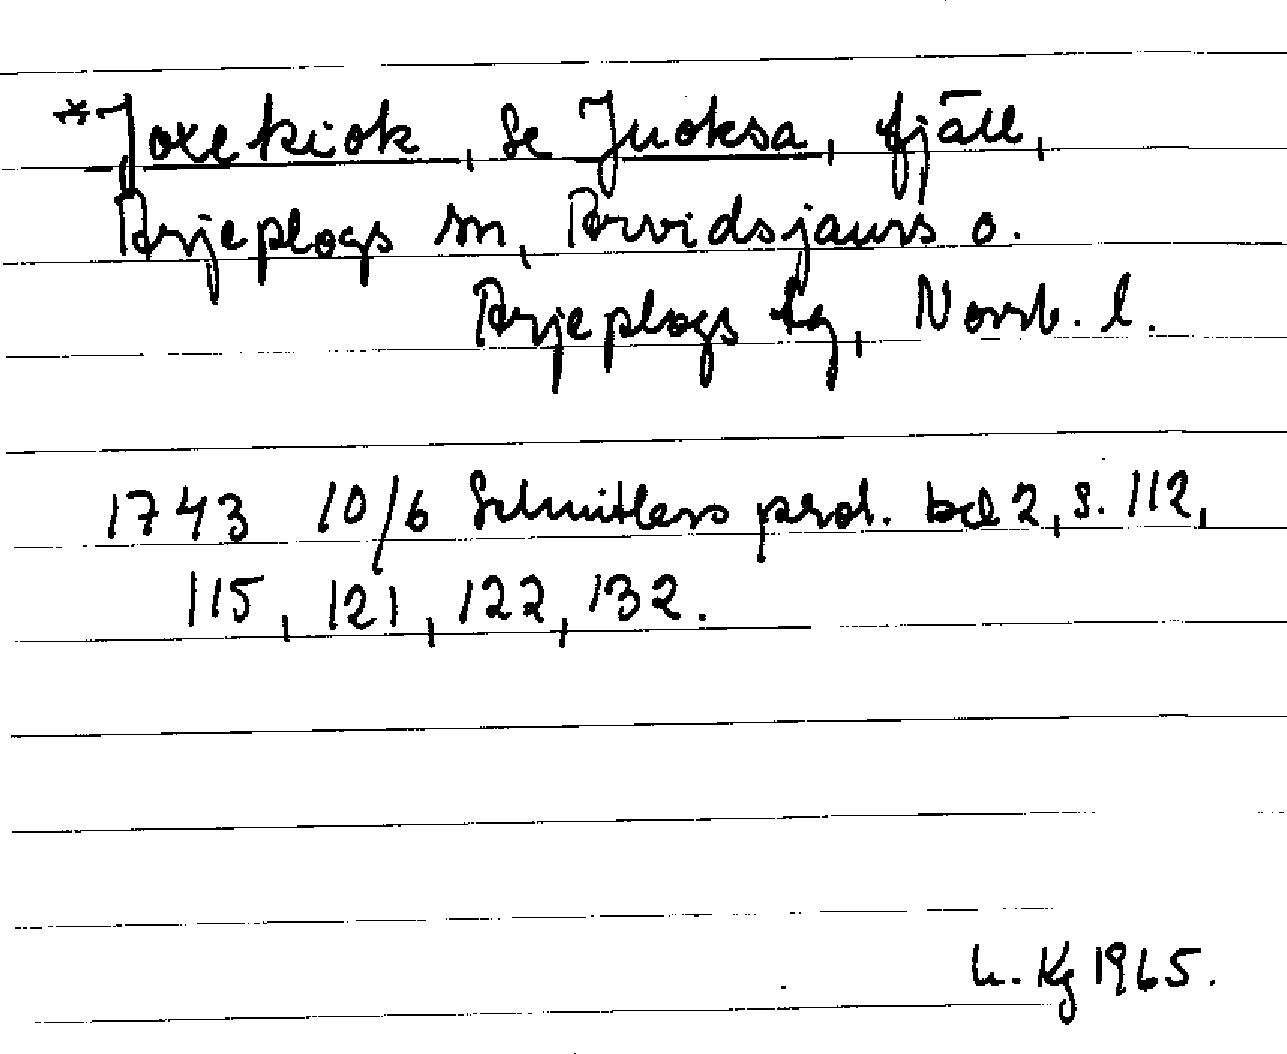 *Joxekiok, se Juoksa, fjäll,
Arjeplogs sn, Arvidsjaurs o.
Arjeplogs tg, Norrb. l.
1743 10/6 Schnitlers prot. bd 2, s. 112,
115, 121, 122, 132.
Kg 1965.